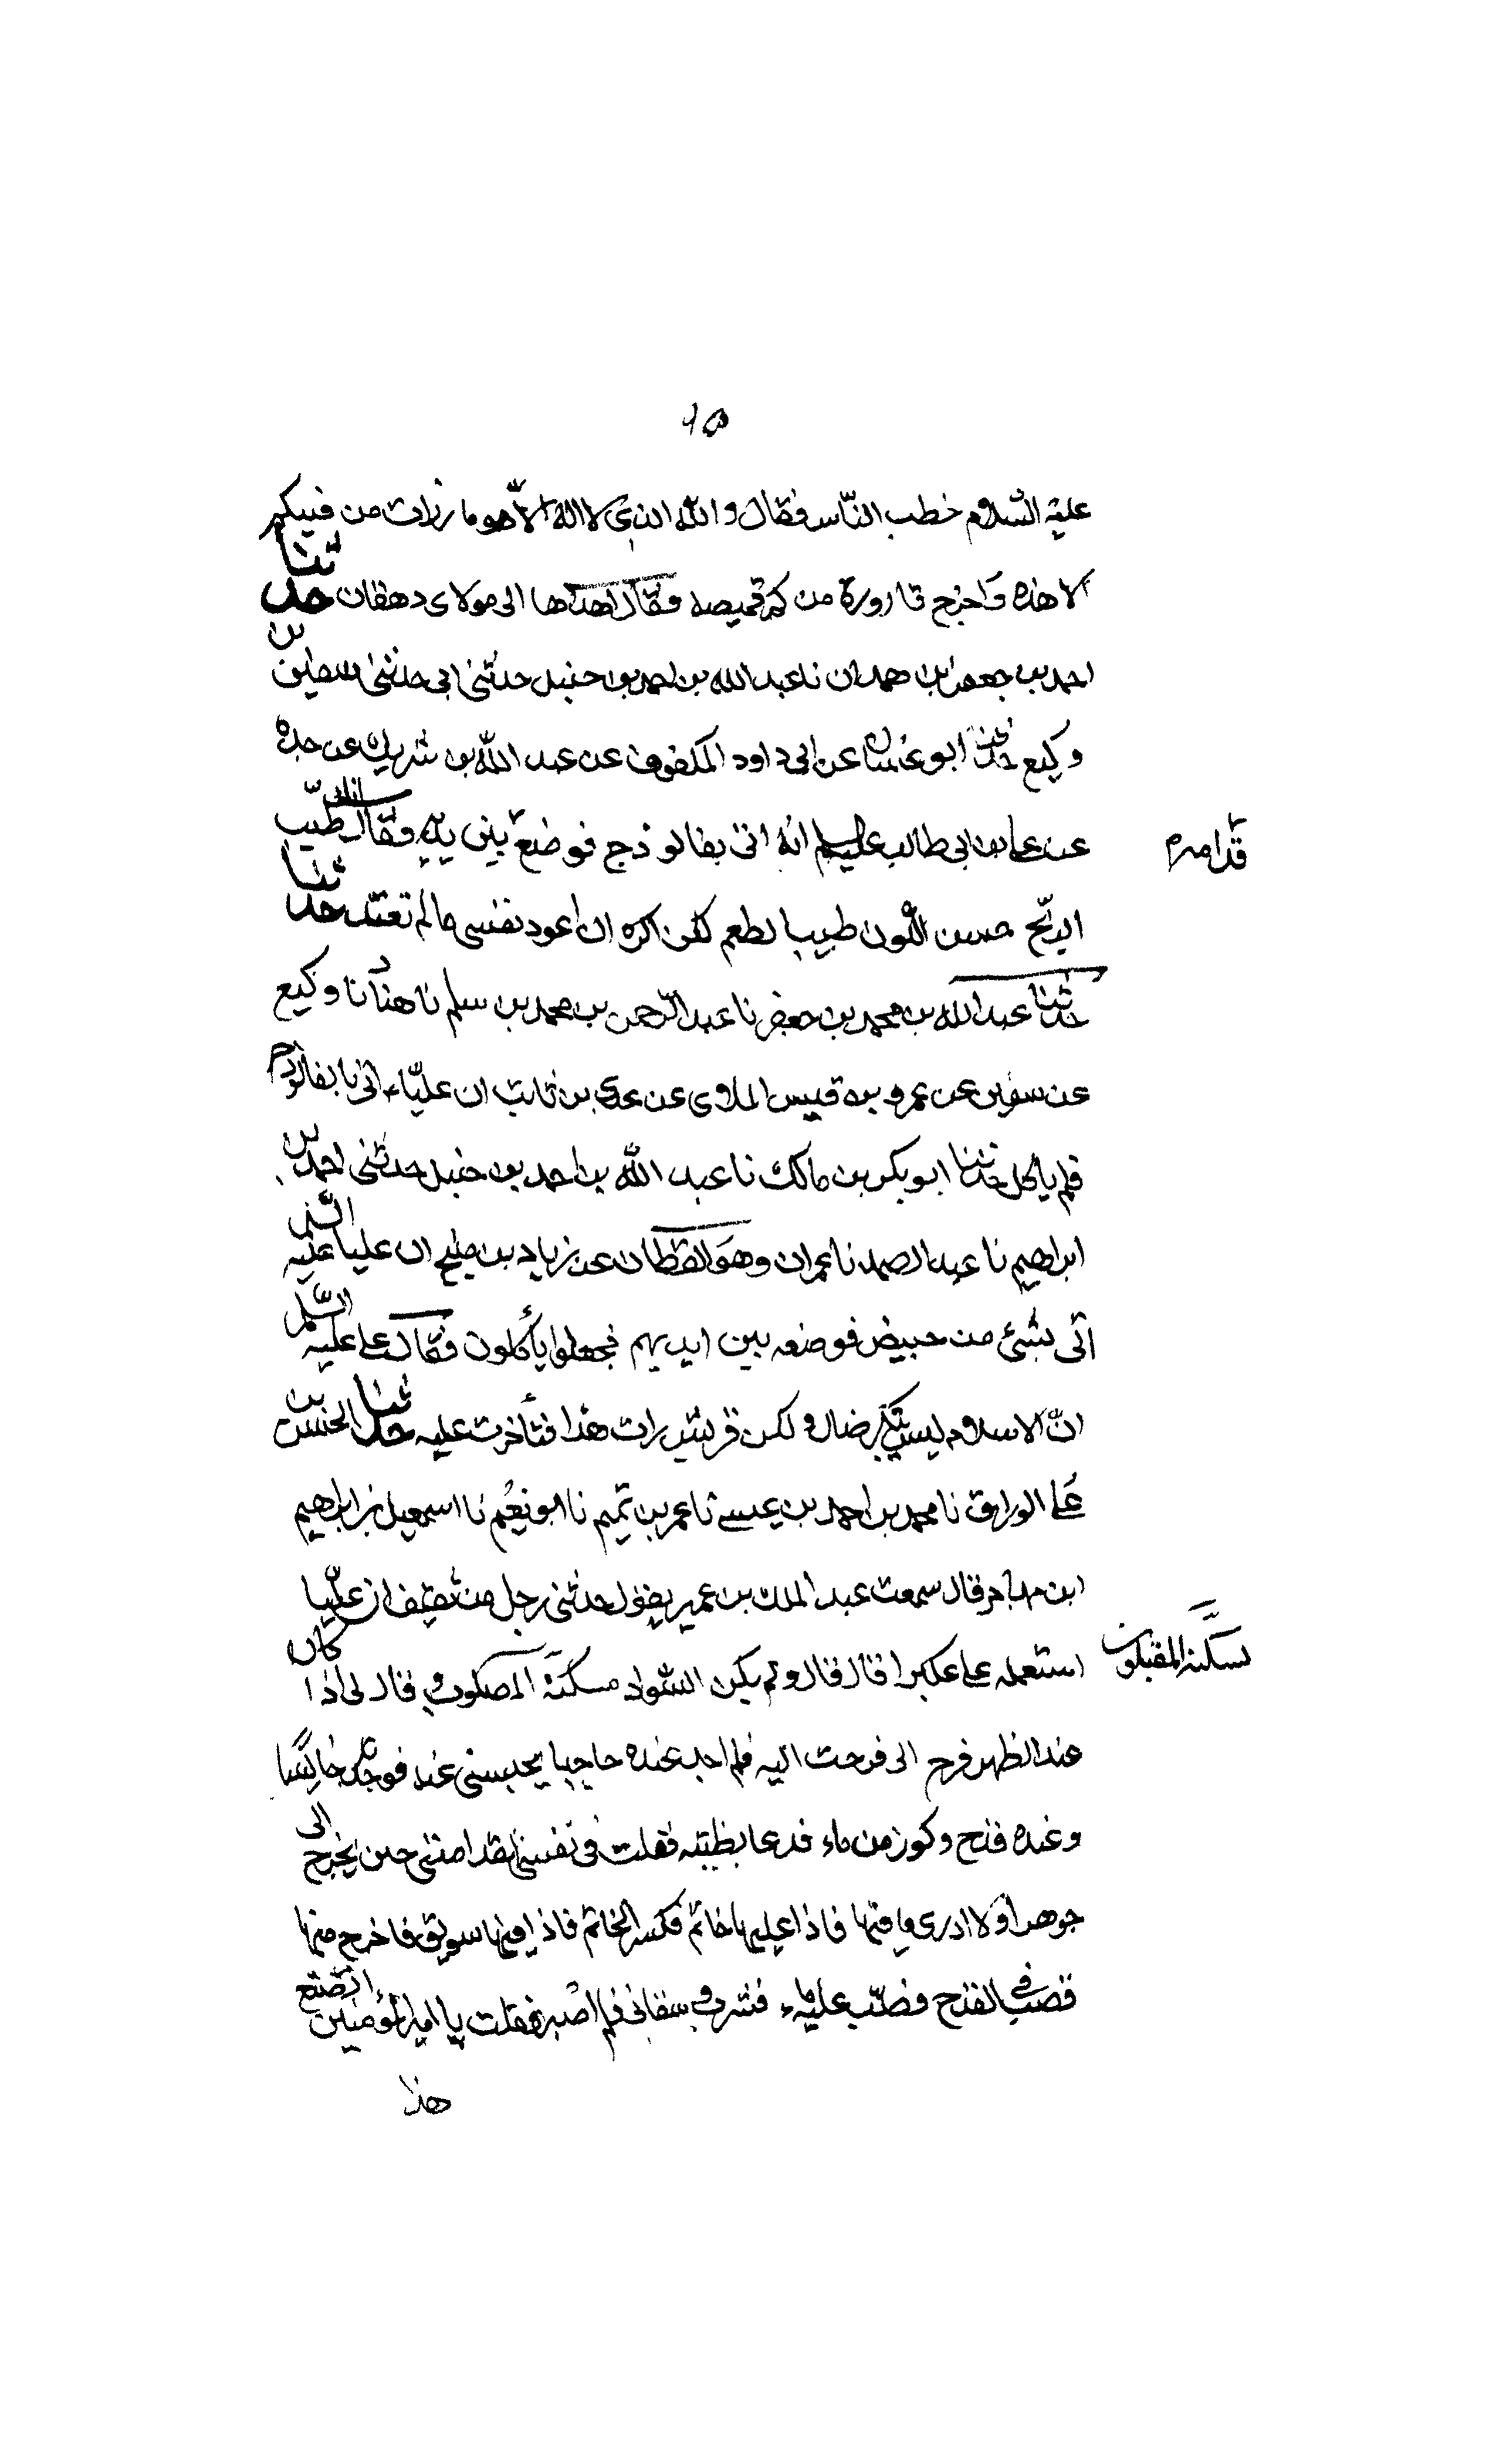 ٦٥
عليه السّلام خطب النّاس فقال والله الذي لا اله الّا هو ما رزات من فيئكم
الا هذه واخرج قارورة من كم قميصه وقال اهداها الى مولاي دهقان حدثنا
احمد بن جعفر بن حمدان نا عبد الله بن احمد بن حنبل حدثني ابي حدثني سفين بن
وكيع حدثنا ابو غسان عن ابي داود المكفوف عن عبد الله بن شريك عن جده
عن علي بن ابي طالب عليه السلم انه اتى بفالوذج فوضع بين يديه وقال انك طيّب
قدامه
الريح حسن اللون طيب الطعم لكن اكره ان اعود نفسي ما لم تعتد حدثنا
حدثنا عبد الله بن محمد بن جعفر نا عبد الرّحمن بن محمد بن سلم نا هناد نا وكيع
عن سفين عن عمرو بن قيس الملاوي عن عدي بن ثابت ان عليّا اتى بالفالوذج
فلم ياكل حدثنا ابو بكر بن مالك نا عبد الله بن احمد بن حنبل حدثني احمد بن
ابراهيم نا عبد الصمد نا عمران وهو القطان عن زياد بن مليح ان عليا عليه
اتى بشئ من خبيص فوضعه بين ايديهم فجعلوا يأكلون فقال علي عليه السّلم
انّ الاسلام ليس ببكر ضال ولكن قريش رات هذا فتناحرت عليه حدثنا الحسن بن
علي الوراق نا محمد بن احمد بن عيسى نا عمر بن تميم نا ابو نعيم نا اسمعيل بن ابراهيم
ابن مهاجر قال سمعت عبد الملك بن عمير يقول حدثني رجل من ثقيف ان عليّا
استعمله على عكبرا قال قال ولم يكن السواد مسكنة المصلون وقال لي اذا كان
يسكنه المصلون
عند الظهر فرح الى فرحت اليه فلم اجد عنده حاجبا يحبسني عنه فوجدته جالسًا
وعنده قدح وكوز من ماء فدعا بظبية فقلت في نفسي لقد امنني حين يخرج الى
جوهرا ولا ادري ما فيها فاذا عليها خاتم فكسر الخاتم فاذا فيها سويق فاخرج منها
فصب في القدح فصّب عليه ماء فشرب وسقاني فلم اصبر فقلت يا امير المؤمنين اتصنع
هذا